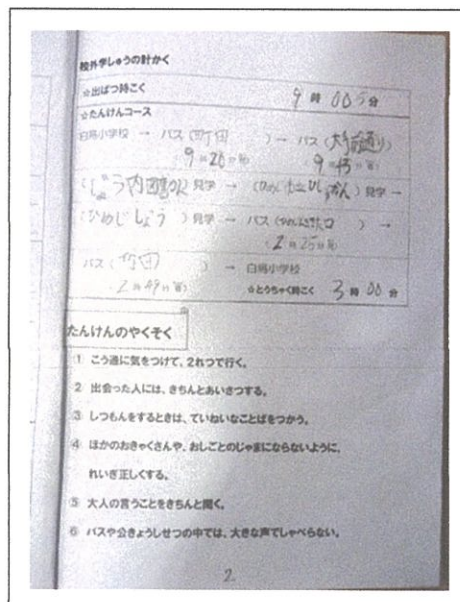 校外学しゅうの計かく
☆出ぱつ時こく 9時 00分
☆たんけんコース
白鳥小学校 → バス(町田) → バス(大手前通り)
9時26分 9時43分
見学 → 見学 →
(ひめじじょう)見学 → バス
(2時25分)
バス(町田) → 白鳥小学校
(2時49分) ☆とうちゃく時こく 3時00分
たんけんのやくそく
① こう通に気をつけて、2れつで行く。
② 出会った人には、きちんとあいさつする。
③ しつもんをするときは、ていねいなことばをつかう。
④ ほかのおきゃくさんや、おしごとのじゃまにならないように、
れいぎ正しくする。
⑤ 大人の言うことをきちんと聞く。
⑥ バスや公きょうしせつの中では、大きな声でしゃべらない。
2